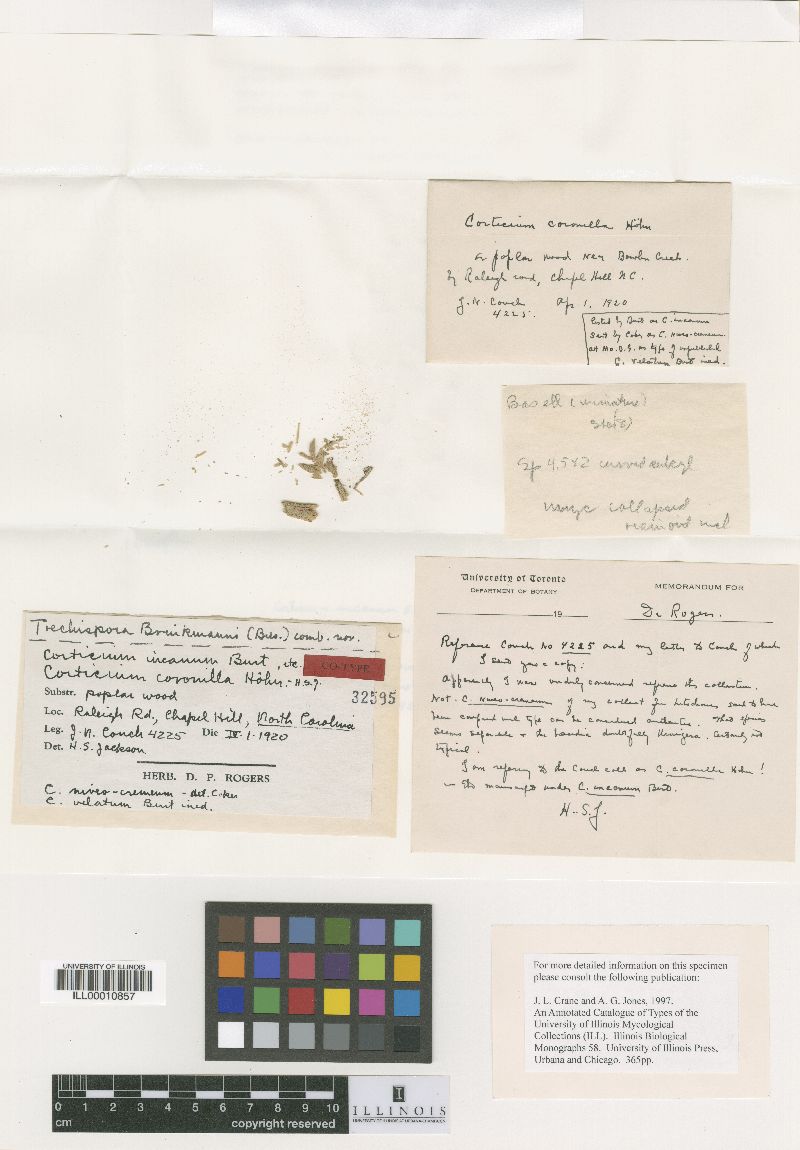 Corticium coronilla Höhn
on poplar wood near Bowlin Creek
by Raleigh road, Chapel Hill N.C.
J. N. Couch Apr 1, 1920
4225.
listed by Burt as C. incanum
sent by Coker as C. niveo-cremeum
at Mo. B. G. as type of unpublished
C. velatum Burt ined.
(immature)
Sp 4.5×2 curved
collapsed
University of Toronto
DEPARTMENT OF BOTANY
MEMORANDUM FOR
19
Dr Rogers.
Reference Couch No 4225 and my letter to Couch of which
I sent you a copy:
Apparently I was unduly concerned regarding this collection.
Not C. niveo-cremeum of my collect fr Litschauer said to have
been compared with type can be considered authentic. That species
seems separable & the
typical.
I am referring to the Couch coll as C. coronilla Höhn!
in the manuscript under C. incanum Burt.
H-S.J.
Trechispora Brinkmanni (Bres.) comb. nov.
Corticium incanum Burt, etc.
CO-TYPE
Corticium coronilla Höhn. - H.S.J.
32595
Substr. poplar wood
Loc. Raleigh Rd., Chapel Hill, North Carolina
Leg. J. N. Couch 4225 Die IV-1-1920
Det. H. S. Jackson
HERB. D. P. ROGERS
C. niveo-cremeum - det. Coker
C. velatum Burt ined.
UNIVERSITY OF ILLINOIS
ILL00010857
For more detailed information on this specimen
please consult the following publication:
J. L. Crane and A. G. Jones, 1997.
An Annotated Catalogue of Types of the
University of Illinois Mycological
Collections (ILL). Illinois Biological
Monographs 58. University of Illinois Press,
Urbana and Chicago. 365pp.
0 1 2 3 4 5 6 7 8 9 10
cm
copyright reserved
I
ILLINOIS
UNIVERSITY OF ILLINOIS AT URBANA-CHAMPAIGN